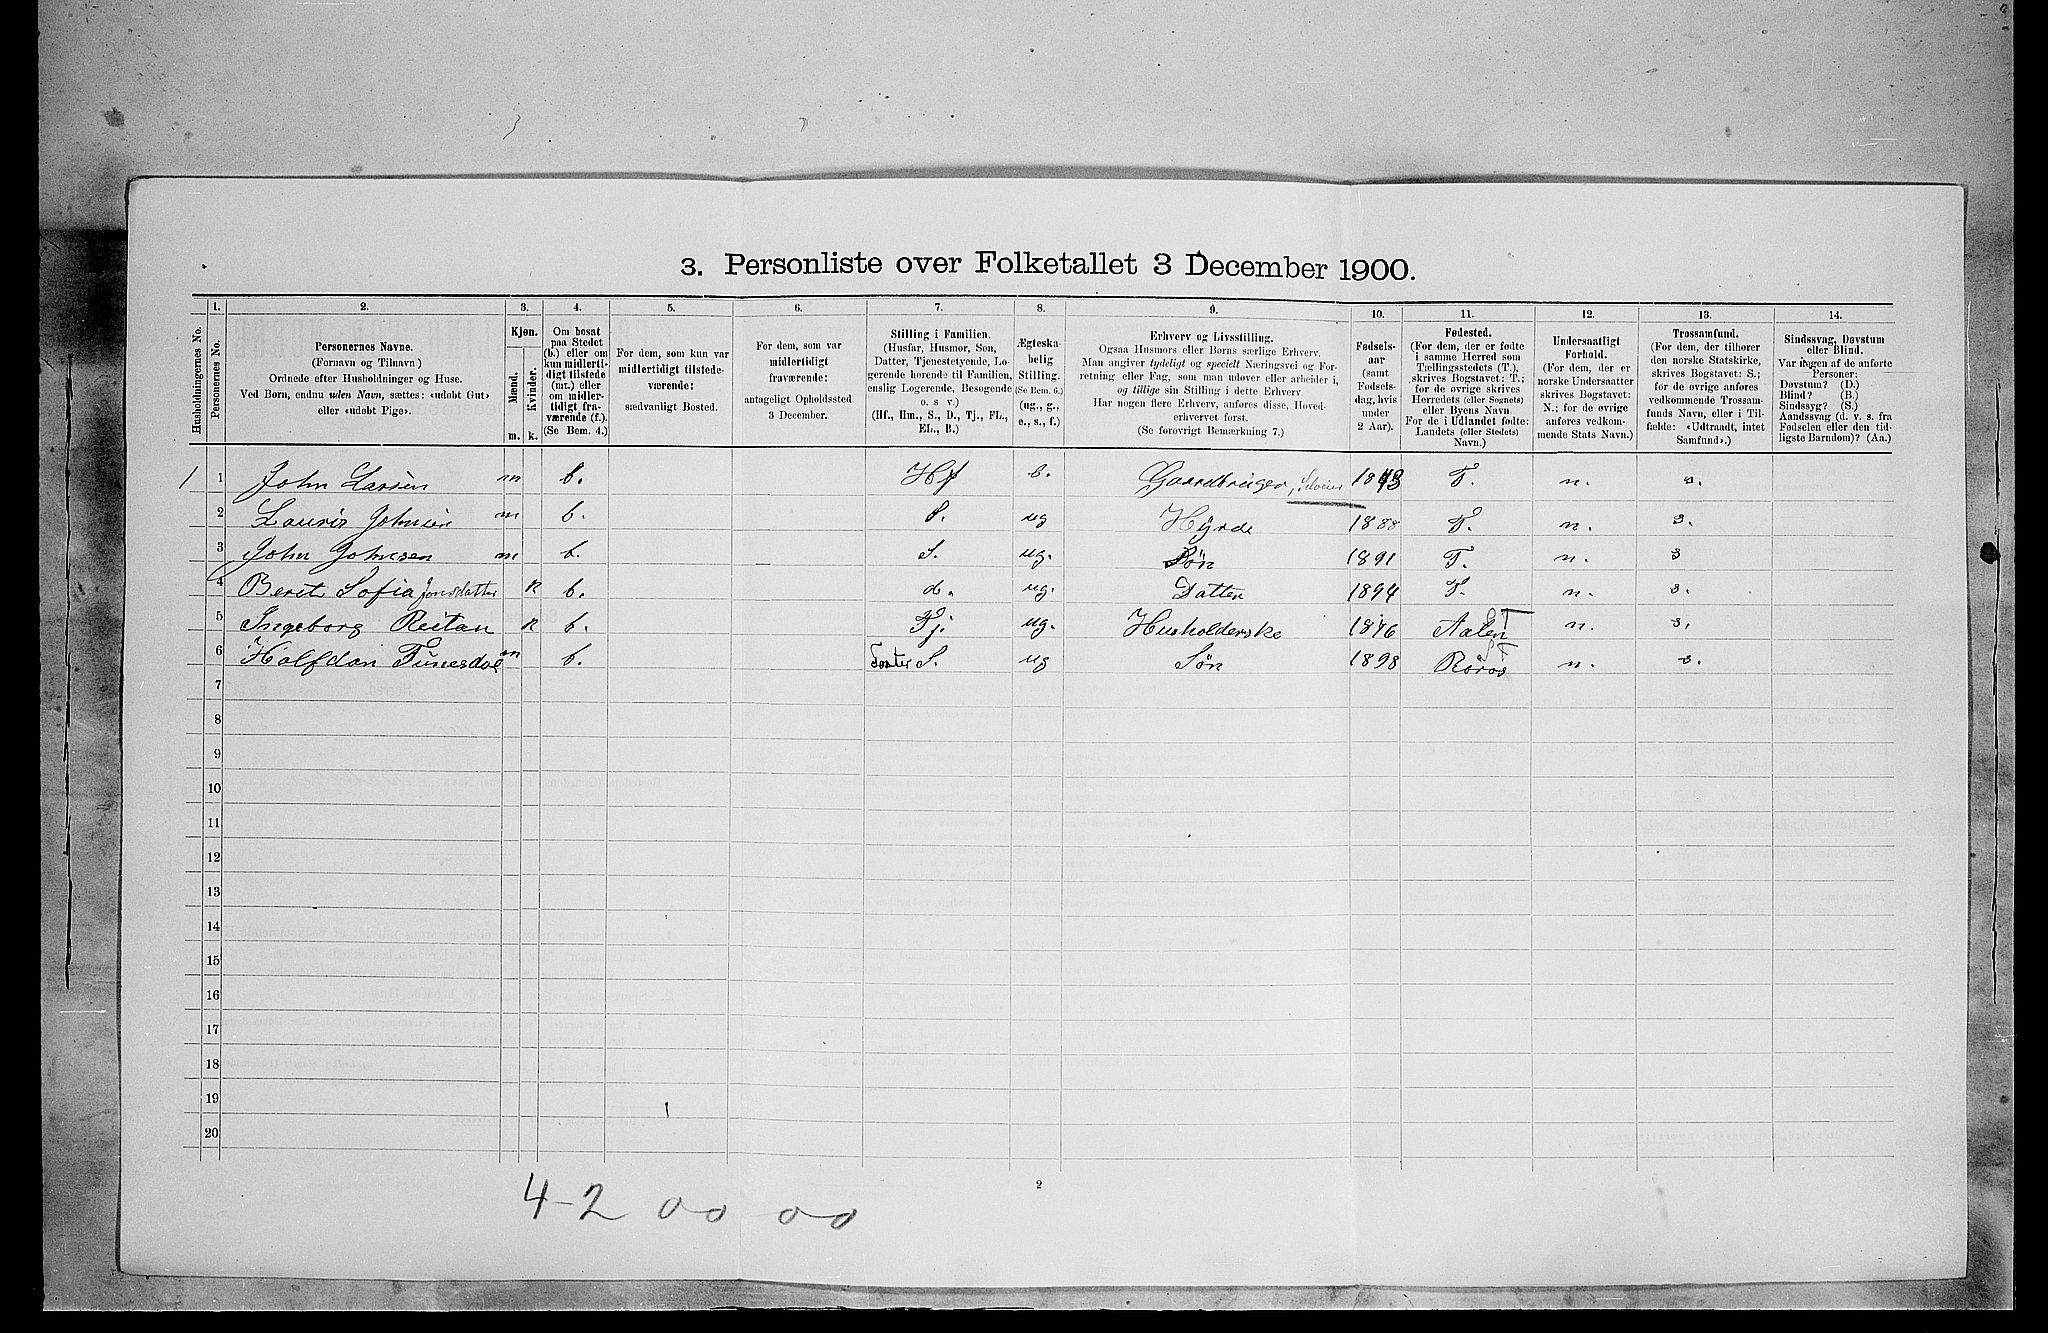 3. Personliste over Folketallet 3 December 1900.
1. 2. 3. 4. 5. 6. 7. 8. 9. 10. 11. 12. 13. 14.
Husholdningernes No.
Personernes No.
Personernes Navne.
(Fornavn og Tilnavn)
Ordnede efter Husholdninger og Huse.
Ved Børn, endnu uden Navn, sættes: «udøbt Gut»
eller «udøbt Pige».
Kjøn.
Mænd.
Kvinder.
m. k.
Om bosat
paa Stedet
(b.) eller om
kun midlerti-
digt tilstede
(mt.) eller
om midler-
tidigt fra-
værende (f.).
(Se Bem. 4.)
For dem, som kun var
midlertidigt tilstede-
værende:
sædvanligt Bosted.
For dem, som var
midlertidigt
fraværende:
antageligt Opholdssted
3 December.
Stilling i Familien.
(Husfar, Husmor, Søn,
Datter, Tjenestetyende, Lo-
gerende hørende til Familien,
enslig Logerende, Besøgende
o. s. v.)
(Hf., Hm., S., D., Tj., FL.,
EL., B.)
Ægteska-
belig
Stilling.
(Se Bem. 6.)
(ug., g.,
e., s., f.)
Erhverv og Livsstilling.
Ogsaa Husmors eller Børns særlige Erhverv.
Man angiver tydeligt og specielt Næringsvei og For-
retning eller Fag, som man udøver eller arbeider i,
og tillige sin Stilling i dette Erhverv.
Har nogen flere Erhverv, anføres disse, Hoved-
erhvervet først.
(Se forøvrigt Bemærkning 7.)
Fødsels-
aar
(samt
Fødsels-
dag, hvis
under
2 Aar).
Fødested.
(For dem, der er fødte
i samme Herred som
Tællingsstedets (T.),
skrives Bogstavet: T.;
for de øvrige skrives
Herredets (eller Sognets)
eller Byens Navn.
For de i Udlandet fødte:
Landets (eller Stedets)
Navn.)
Undersaatligt
Forhold.
(For dem, der er
norske Undersaatter
skrives Bogstavet:
N.; for de øvrige
anføres vedkom-
mende Stats Navn.)
Trossamfund.
(For dem, der tilhører
den norske Statskirke,
skrives Bogstavet: S.;
for de øvrige anføres
vedkommende Trossam-
funds Navn, eller i Til-
fælde: «Udtraadt, intet
Samfund».)
Sindssvag, Døvstum
eller Blind.
Var nogen af de anførte
Personer:
Døvstum? (D.)
Blind? (B.)
Sindssyg? (S.)
Aandssvag (d. v. s. fra
Fødselen eller den tid-
ligste Barndom)? (Aa.)
1 1 John Larsen m b. Hf e. Gaardbruger, Selveier 1843 T. n. s.
2 Lauris Johnsen m b. S. ug Hyrde 1888 T. n. s.
3 John Johnsen m b. S. ug. Søn 1891 T. n. s
4 Berit Sofia Jonsdatter k b. d. ug. Datter 1894 T. n. s.
5 Ingeborg Reitan k b. Tj. ug. Husholderske 1876 Aalen n. s.
6 Halfdan m b. Foster S. ug Søn 1898 Røros n. s.
7
8
9
10
11
12
13
14
15
16
17
18
19
20
2
4-2 00 00